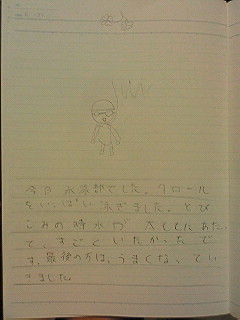 今日水泳部でした。クロール
をいっぱい泳ぎました。とび
こみの時水が
て、すごくいたかったで
す。最後の方は、うまくなってい
きました。